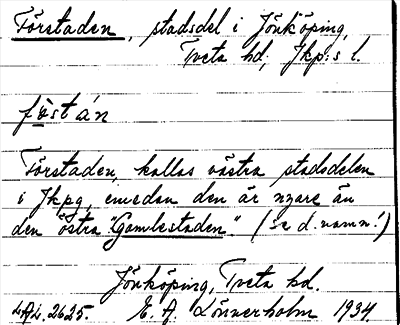 Förstaden, stadsdel i Jönköping,
Tveta hd, Jkp:s l.
föstán
Förstaden, kallas västra stadsdelen
i Jkpg, emedan den är nyare än
den östra "Gamlestaden" (se d. namn!)
Jönköping, Tveta hd.
2625. E. A. Lönnerholm 1934